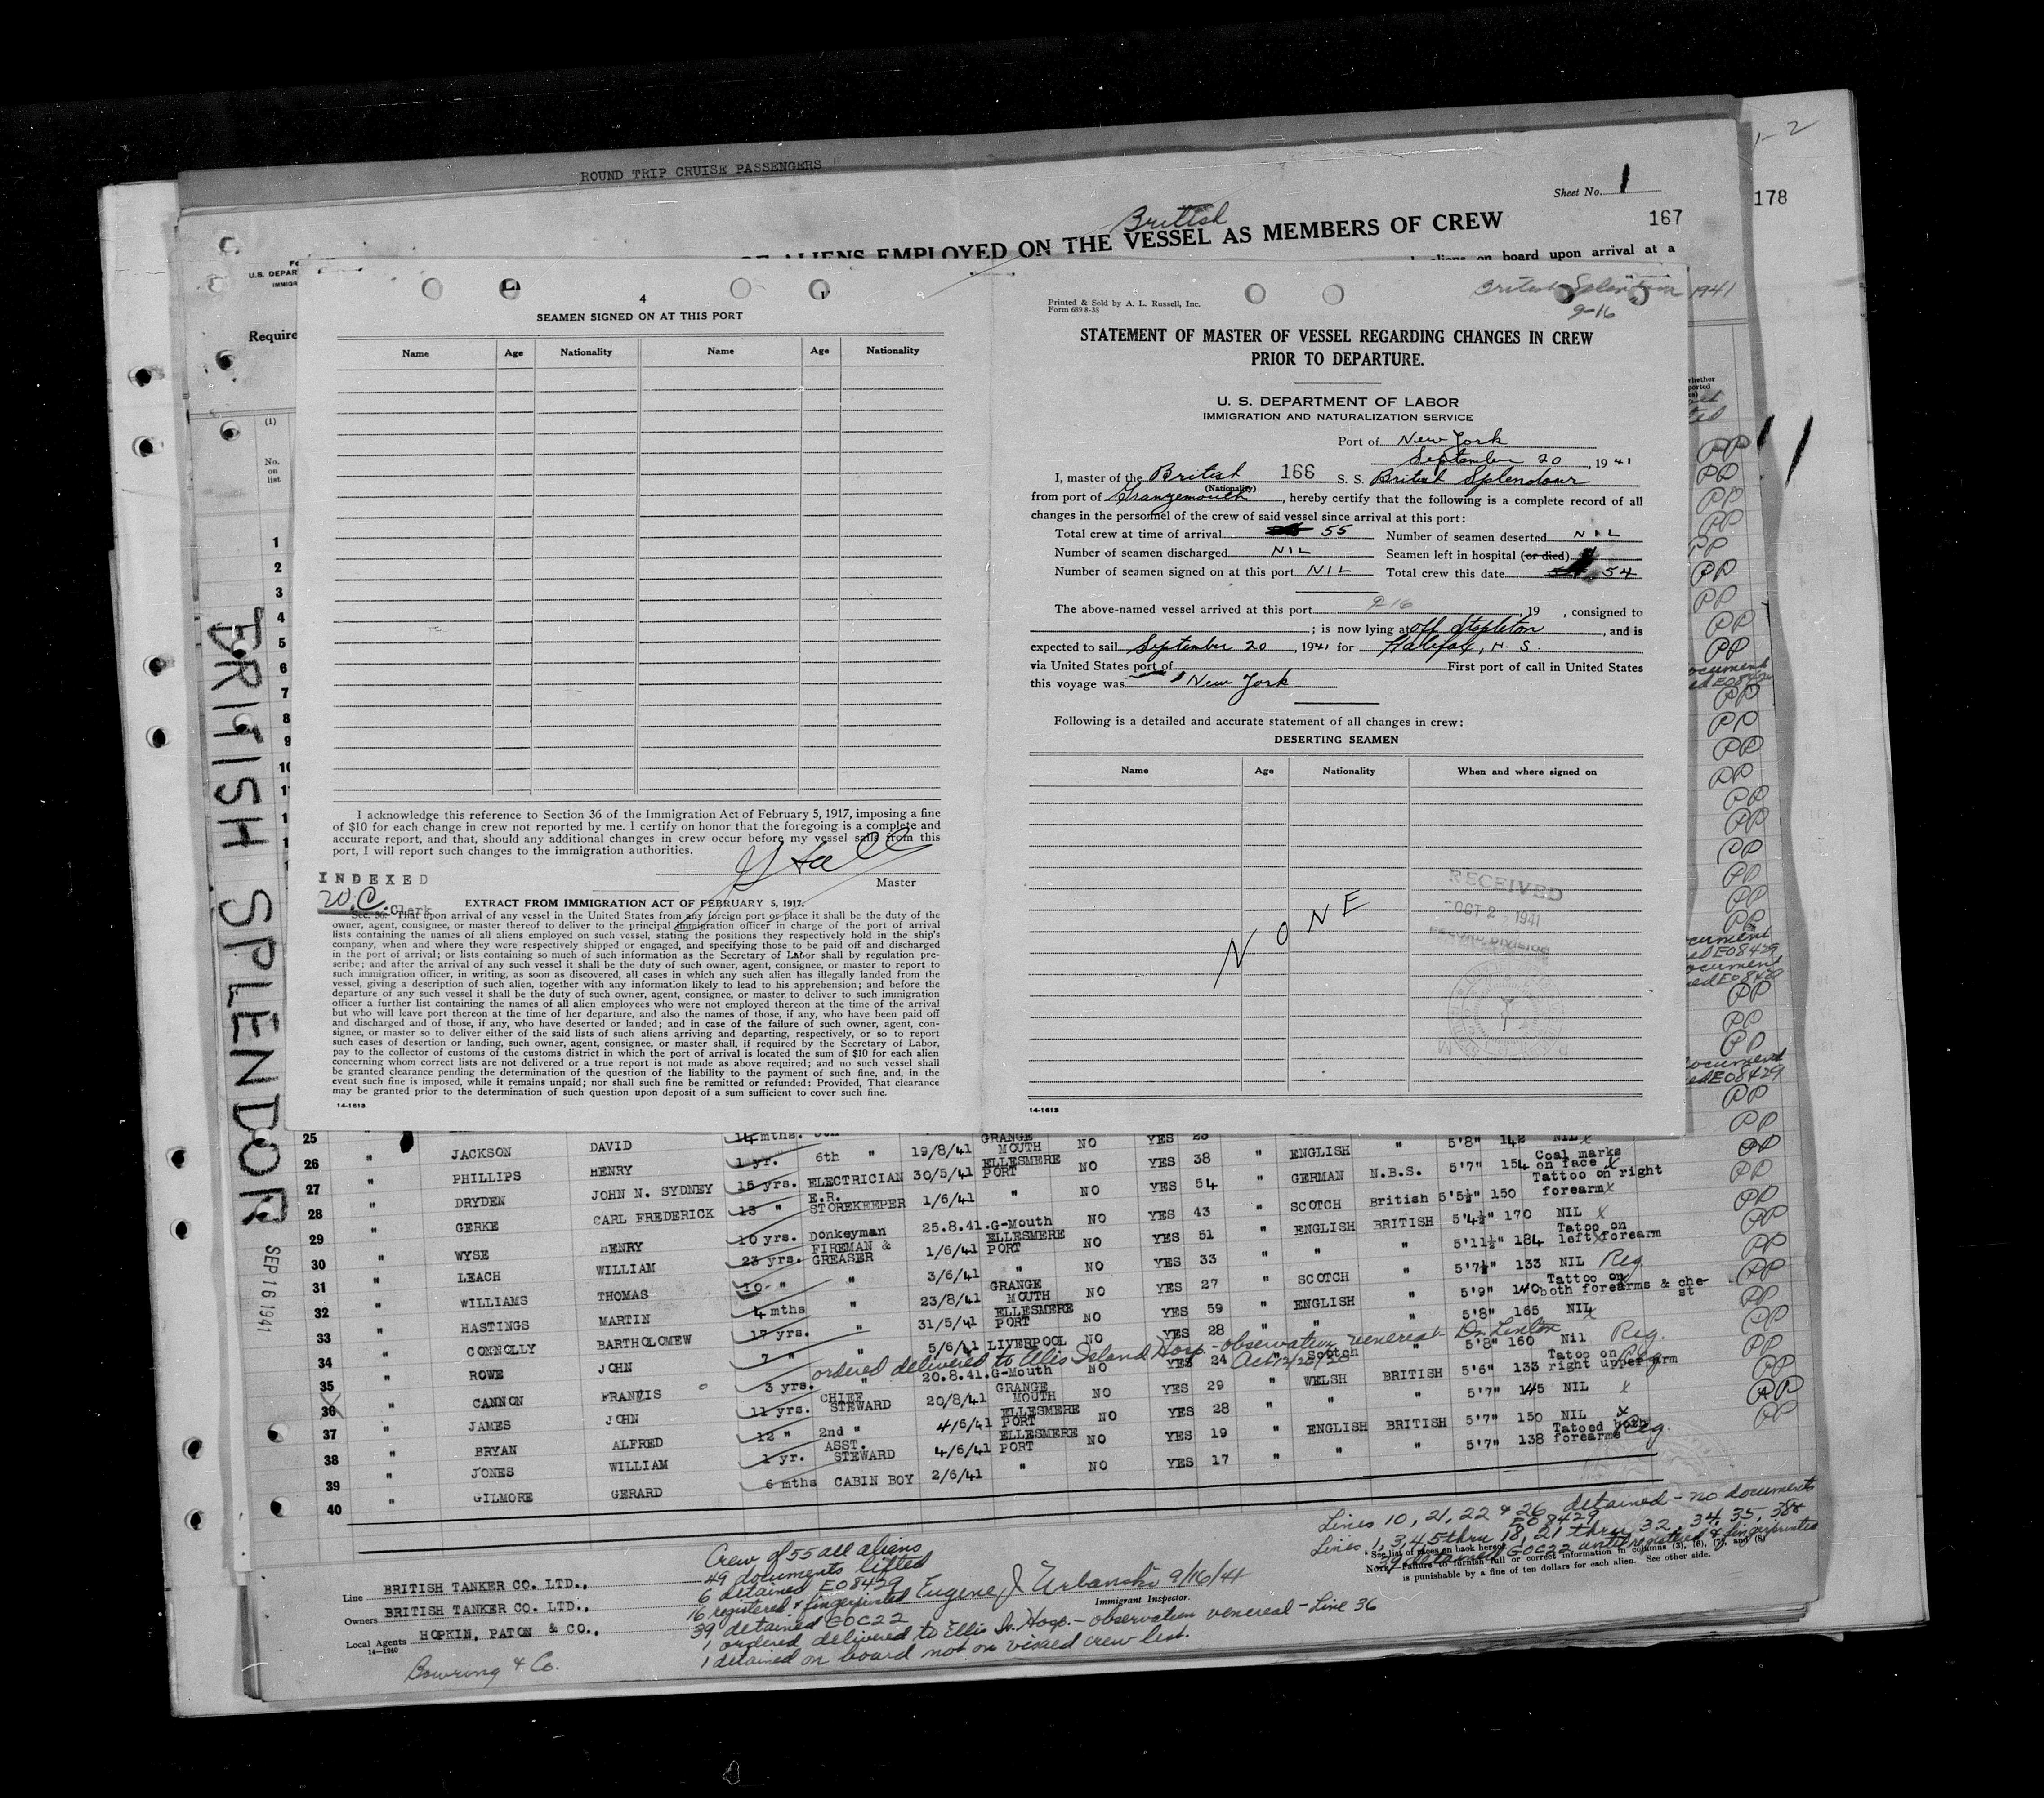 ROUND TRIP CRUISE PASSENGERS
Sheet No. 1
178
167
British
ALIENS EMPLOYED ON THE VESSEL AS MEMBERS OF CREW
aliens on board upon arrival at a
U.S. DEPAR
IMMIG
Require
(1)
No.
on
list
1
2
3
4
5
6
7
8
9
BRITISH SPLENDOR
SEP 16 1941
4
SEAMEN SIGNED ON AT THIS PORT
Name Age Nationality Name Age Nationality
I acknowledge this reference to Section 36 of the Immigration Act of February 5, 1917, imposing a fine
of $10 for each change in crew not reported by me. I certify on honor that the foregoing is a complete and
accurate report, and that, should any additional changes in crew occur before my vessel sails from this
port, I will report such changes to the immigration authorities.
Master
INDEXED
Clerk
EXTRACT FROM IMMIGRATION ACT OF FEBRUARY 5, 1917.
Sec. 36. That upon arrival of any vessel in the United States from any foreign port or place it shall be the duty of the
owner, agent, consignee, or master thereof to deliver to the principal immigration officer in charge of the port of arrival
lists containing the names of all aliens employed on such vessel, stating the positions they respectively hold in the ship's
company, when and where they were respectively shipped or engaged, and specifying those to be paid off and discharged
in the port of arrival; or lists containing so much of such information as the Secretary of Labor shall by regulation pre-
scribe; and after the arrival of any such vessel it shall be the duty of such owner, agent, consignee, or master to report to
such immigration officer, in writing, as soon as discovered, all cases in which any such alien has illegally landed from the
vessel, giving a description of such alien, together with any information likely to lead to his apprehension; and before the
departure of any such vessel it shall be the duty of such owner, agent, consignee, or master to deliver to such immigration
officer a further list containing the names of all alien employees who were not employed thereon at the time of the arrival
but who will leave port thereon at the time of her departure, and also the names of those, if any, who have been paid off
and discharged and of those, if any, who have deserted or landed; and in case of the failure of such owner, agent, con-
signee, or master so to deliver either of the said lists of such aliens arriving and departing, respectively, or so to report
such cases of desertion or landing, such owner, agent, consignee, or master shall, if required by the Secretary of Labor,
pay to the collector of customs of the customs district in which the port of arrival is located the sum of $10 for each alien
concerning whom correct lists are not delivered or a true report is not made as above required; and no such vessel shall
be granted clearance pending the determination of the question of the liability to the payment of such fine, and, in the
event such fine is imposed, while it remains unpaid; nor shall such fine be remitted or refunded: Provided, That clearance
may be granted prior to the determination of such question upon deposit of a sum sufficient to cover such fine.
14-1613
Printed & Sold by A. L. Russell, Inc.
Form 689 8-38
1941
9-16
STATEMENT OF MASTER OF VESSEL REGARDING CHANGES IN CREW
PRIOR TO DEPARTURE.
U. S. DEPARTMENT OF LABOR
IMMIGRATION AND NATURALIZATION SERVICE
Port of New York
September 20, 1941
I, master of the British 166 S. S. British Splendour
(Nationality)
from port of Grangemouth, hereby certify that the following is a complete record of all
changes in the personnel of the crew of said vessel since arrival at this port:
Total crew at time of arrival 55 Number of seamen deserted NIL
Number of seamen discharged NIL Seamen left in hospital (or died) 1
Number of seamen signed on at this port NIL Total crew this date 54
The above-named vessel arrived at this port 9-16, 19 , consigned to
; is now lying at off Stapleton, and is
expected to sail September 20, 1941 for Halifax, N. S.
via United States port of First port of call in United States
this voyage was New York
Following is a detailed and accurate statement of all changes in crew:
DESERTING SEAMEN
Name Age Nationality When and where signed on
NONE
RECEIVED
OCT 2, 1941
RECORD DIVISION
14-1613
25 " JACKSON DAVID 14 mths.
26 " PHILLIPS HENRY 1 yr. 6th " 19/8/41 GRANGE MOUTH NO YES
27 " DRYDEN JOHN N. SYDNEY 15 yrs. ELECTRICIAN 30/5/41 ELLESMERE PORT NO YES 38 " ENGLISH " 5'8" 142 NIL
28 " GERKE CARL FREDERICK 13 " E.R. STOREKEEPER 1/6/41 " NO YES 54 " GERMAN N.B.S. 5'7" 154 Coal marks on face
29 " WYSE HENRY 10 yrs. Donkeyman 25.8.41. G-Mouth NO YES 43 " SCOTCH British 5'5½" 150 Tattoo on right forearm
30 " LEACH WILLIAM 23 yrs. FIREMAN & GREASER 1/6/41 ELLESMERE PORT NO YES 51 " ENGLISH BRITISH 5'4½" 170 NIL
31 " WILLIAMS THOMAS 10 " " 3/6/41 " NO YES 33 " " " 5'11½" 184 Tatoo on left forearm
32 " HASTINGS MARTIN 4 mths " 23/8/41 GRANGE MOUTH NO YES 27 " SCOTCH " 5'7½" 133 NIL Reg.
33 " CONNOLLY BARTHOLOMEW 17 yrs. " 31/5/41 ELLESMERE PORT NO YES 59 " ENGLISH " 5'9" 140 Tattoo on both forearms & chest
34 " ROWE JOHN 7 " " 5/6/41 LIVERPOOL NO YES 28 " " " 5'8" 165 NIL
ordered delivered to Ellis Island Hosp. - observation venereal - Dr. Linton
35 " CANNON FRANCIS 3 yrs. " 20.8.41. G-Mouth NO YES 24 " Scotch " 5'8" 160 Nil Reg.
36 " JAMES JOHN 11 yrs. CHIEF STEWARD 20/8/41 GRANGE MOUTH NO YES 29 " WELSH BRITISH 5'6" 133 Tatoo on right upper arm
37 " BRYAN ALFRED 12 " 2nd " 4/6/41 ELLESMERE PORT NO YES 28 " " " 5'7" 145 NIL
38 " JONES WILLIAM 1 yr. ASST. STEWARD 4/6/41 ELLESMERE PORT NO YES 19 " ENGLISH BRITISH 5'7" 150 NIL
39 " GILMORE GERARD 6 mths CABIN BOY 2/6/41 " NO YES 17 " " " 5'7" 138 Tatoed both forearms Reg.
40
Lines 10, 21, 22 & 26 detained - no documents
E08429
Lines 1, 3, 4, 5 thru 18, 21 thru 32, 34, 35, 38 &
39 detained GOC22 until registered & fingerprinted
* See list of races on back hereof.
Note.—Failure to furnish full or correct information in columns (3), (5), (6), (7), and (8)
is punishable by a fine of ten dollars for each alien. See other side.
Crew of 55 all aliens
49 documents lifted
6 detained E08429
16 registered & fingerprinted
39 detained GOC22
1 ordered delivered to Ellis Is. Hosp. - observation venereal - Line 36
1 detained on board not on visaed crew list.
Eugene J Urbanski 9/16/41
Immigrant Inspector.
Line BRITISH TANKER CO. LTD.,
Owners BRITISH TANKER CO. LTD.,
Local Agents HOPKIN, PATON & CO.,
14-1240
Bowring & Co.